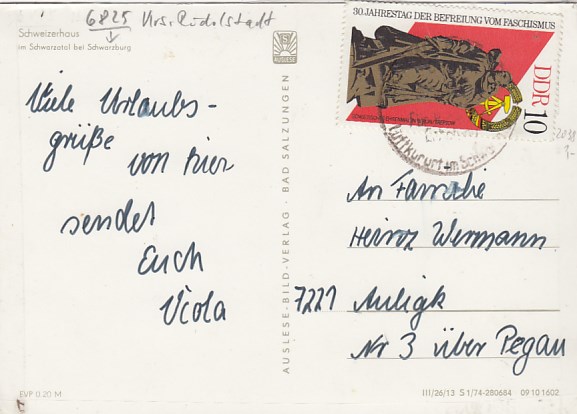 6825 Krs. Rudolstadt
Schweizerhaus
im Schwarzatal bei Schwarzburg
AUSLESE
Viele Urlaubs-
grüße
von hier
sendet
Euch
Viola
EVP 0.20 M
AUSLESE-BILD-VERLAG · BAD SALZUNGEN
30. JAHRESTAG DER BEFREIUNG VOM FASCHISMUS
DDR
10
Luftkurort im Schwarzatal
An Familie
Heinz Wermann
7221 Auligk
Nr 3 über Pegau
III/26/13 S 1/74-280684 09 10 1602